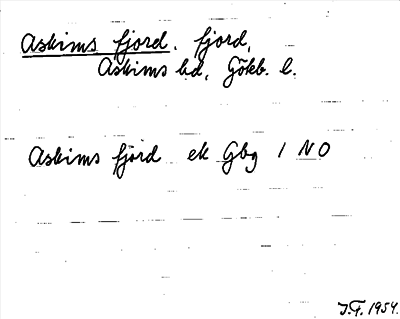 Askims fjord. fjord,
Askims hd, Göteb. l.
Askims fjörd ek Gbg 1 NO
J.F. 1954.